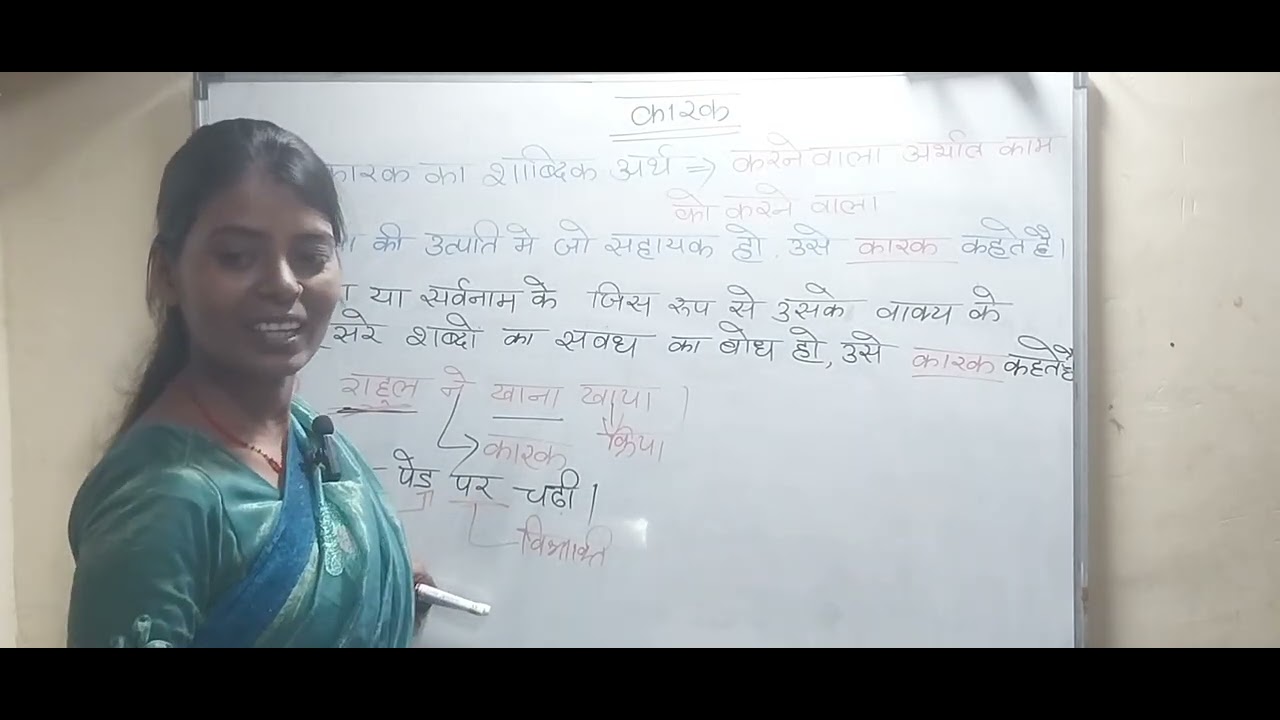 कारक
कारक का शाब्दिक अर्थ ⇒ करने वाला अर्थात काम
को करने वाला
की उत्पति मे जो सहायक हो, उसे कारक कहते है।
या सर्वनाम के जिस रूप से उसके वाक्य के
सरे शब्दो का सवंध का बोध हो, उसे कारक कहते है
राहूल ने खाना खाया ।
कारक क्रिया
पेड़ पर चढ़ी ।
विभक्ति